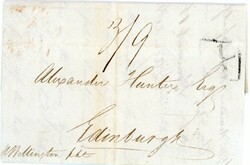 3/9
Alexander Hunter Esq
Edinburgh
Wellington